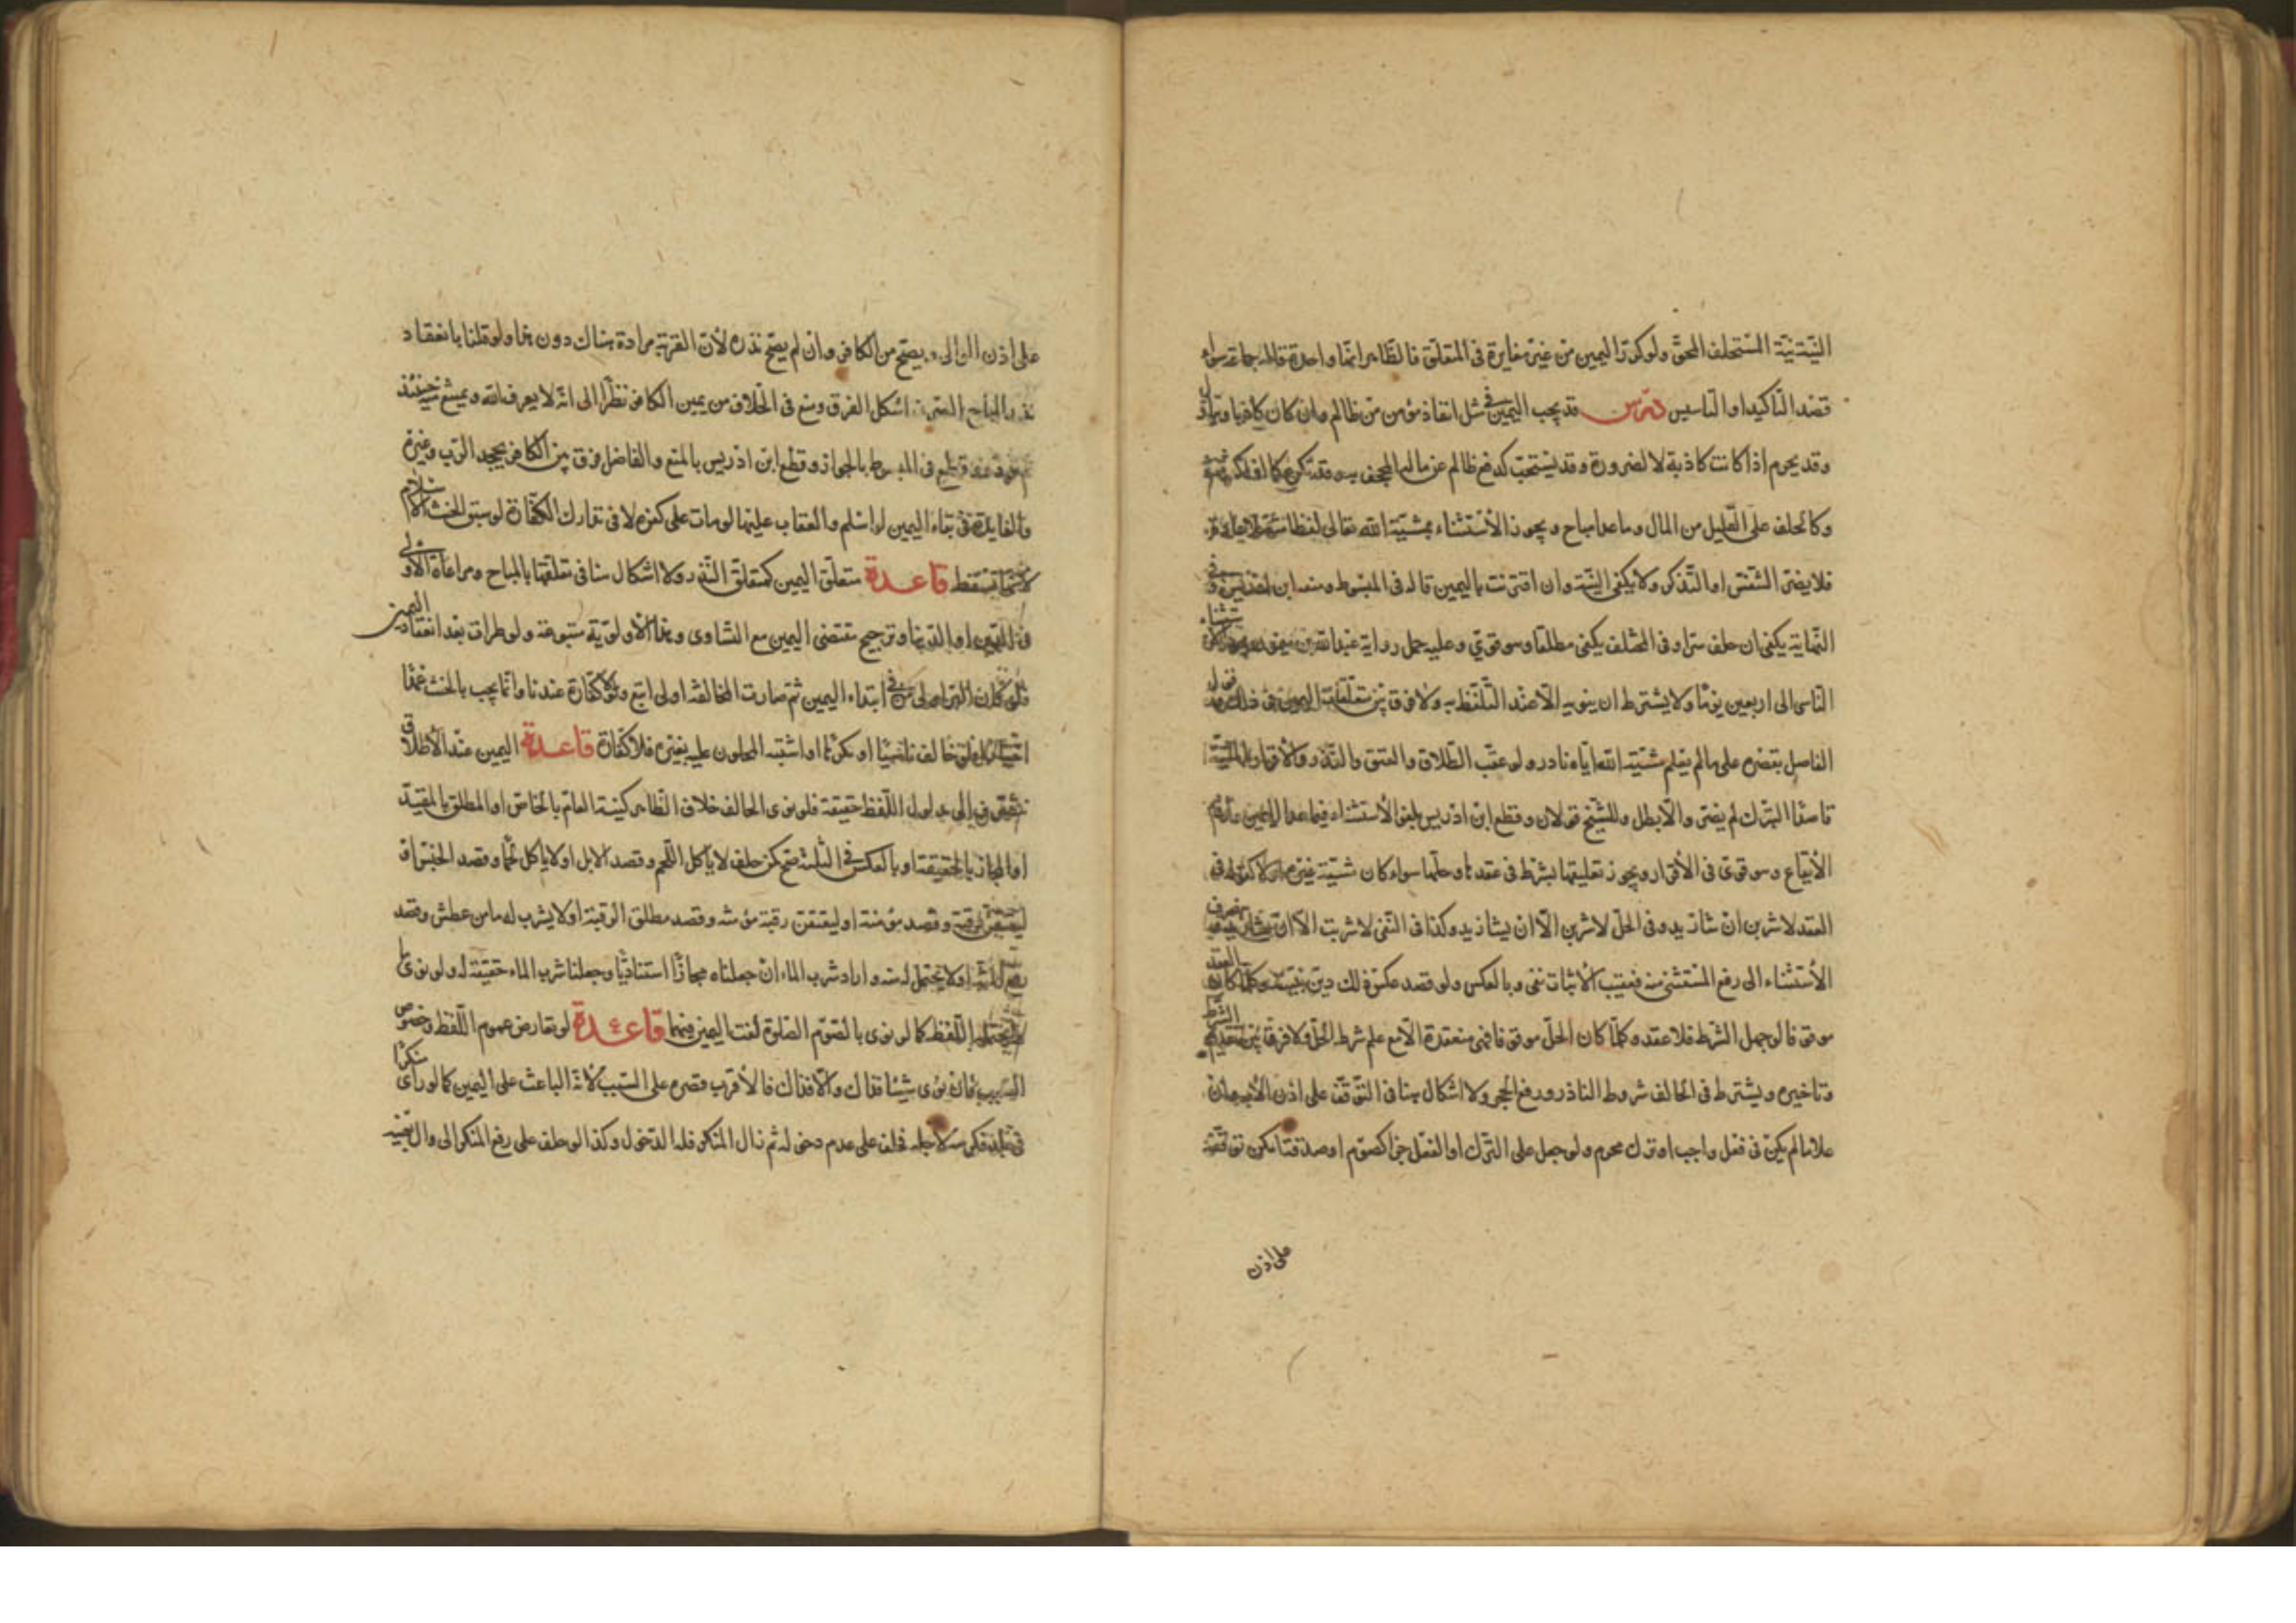 النية نية المستحلف المحق ولو كرر اليمين من غير مغايرة في المتعلق فالظاهر انها واحدة سواء
قصد التاكيد او التاسيس درس قد يجب اليمين في مثل انقاذ مؤمن من ظالم وان كان كاذبا
وقد يحرم اذا كانت كاذبة لا لضرورة وقد يستحب كدفع ظالم عن ماله المجحف به وقد تكره
وكالحلف على القليل من المال وما عدا مباح ويجوز الاستثناء بمشيئة الله تعالى لفظا
فلا يضر التنفس او التذكر ولا يكفي النية وان اقترنت باليمين قاله في المبسوط ومنه ابن ادريس وفي
النهاية يكفي ان حلف سرا وفي المختلف يكفي مطلقا وهو قوي وعليه حمل رواية عبد الله بن ميمون
الناسي الى اربعين يوما ولا يشترط ان ينويه الا عند التلفظ به ولا فرق بين متعلقات اليمين في ذلك
الفاضل بقصره على ما لم يعلم مشيئة الله اياه نادر ولو عقب الطلاق والعتق والنذر والاقرار بالمشية
قاصدا التبرك لم يضر والا بطل وللشيخ قولان وقطع ابن ادريس بلغو الاستثناء فيما عدا اليمين
الايقاع وهو قوي في الاقرار ويجوز تعليقها بشرط في عقدها وحلها سواء كان مشيئة غيره او لا كقوله في
العقد لاشربن ان شاء زيد وفي الحل لاشربن الا ان يشاء زيد وكذا في النفي لا شربت الا ان يشاء زيد
الاستثناء الى رفع المستثنى منه فعقيب الاثبات نفي وبالعكس ولو قصد عكس ذلك دين بنيته وكلما كان العقد
موقوفا لو جهل الشرط فلا عقد وكلما كان الحل موقوفا فهي منعقدة الا مع علم شرط الحل ولا فرق بين تقديم الشرط
وتاخيره ويشترط في الحالف شروط الناذر ورفع الحجر ولا اشكال هنا في التوقف على اذن الاب
علانا لم يكن في فعل واجب او ترك محرم ولو جعل على الترك او الفعل جزاء كصوم او صدقة امكن توقفه
على اذن
على اذن الوالي ويصح من الكافر وان لم يصح نذره لان القربة مرادة هناك دون هنا ولو قلنا بانعقاد
نذر المباح اشكل الفرق ومنع في الخلاف من يمين الكافر نظرا الى انه لا يعرف الله حينئذ
في المبسوط بالجواز وقطع ابن ادريس بالمنع والفاضل فرق بين الكافر بجحد الرب وغيره
والفايدة في بقاء اليمين لو اسلم والعقاب عليها لو مات على كفره لا في تدارك الكفارة لو سبق الحنث الاسلام
لانها تسقط قاعدة متعلق اليمين كمتعلق النذر ولا اشكال هنا في تعلقها بالمباح ومراعاة الاولى
في الدين او الدنيا وترجيح مقتضى اليمين مع التساوي وهنا الاولوية متبوعة ولو طرات بعد انعقاد اليمين
فلو كان البر اولى في ابتداء اليمين ثم صارت المخالفة اولى اتبع ولا كفارة عندنا وانما يجب بالحنث عمدا
اختيارا فلو خالف ناسيا او مكرها او اشتبه المحلوف عليه بغيره فلا كفارة قاعدة اليمين عند الاطلاق
تنصرف الى مدلول اللفظ حقيقة فلو نوى الحالف خلاف الظاهر كنية العام بالخاص او المطلق بالمقيد
او المجاز بالحقيقة او بالعكس في الثلثة صح كمن حلف لا ياكل اللحم وقصد الابل او لا ياكل لحما وقصد الجنس او
ليعتقن رقبة وقصد مؤمنة او ليعتقن رقبة مؤمنة وقصد مطلق الرقبة او لا يشرب له ماء من عطش وقصد
رفع المنة او لا يحتمل له منة واراد شرب الماء ان جعلناه مجازا اسناديا وجعلنا شرب الماء حقيقة له ولو نوى ما
لا يحتمله اللفظ كما لو نوى بالصوم الصلوة لغت اليمين فيهما قاعدة لو تعارض عموم اللفظ وخصوص
السبب فان نوى شيئا فذاك والا فالاقرب قصره على السبب لانه الباعث على اليمين كما لو راى منكرا
في بلد فكرهه لاجله فحلف على عدم دخوله ثم زال المنكر فله الدخول وكذا لو حلف على رفع المنكر الى وال